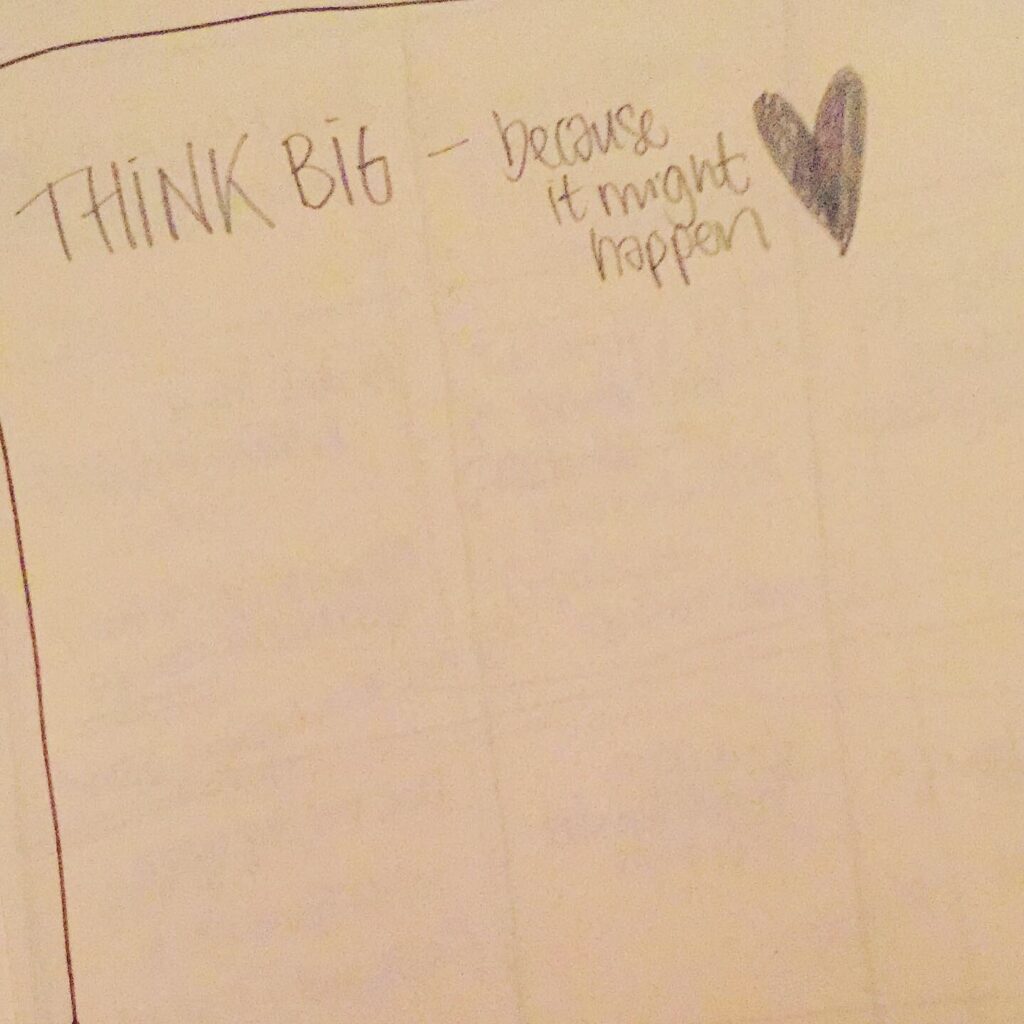 THiNK BiG – because
it might
happen